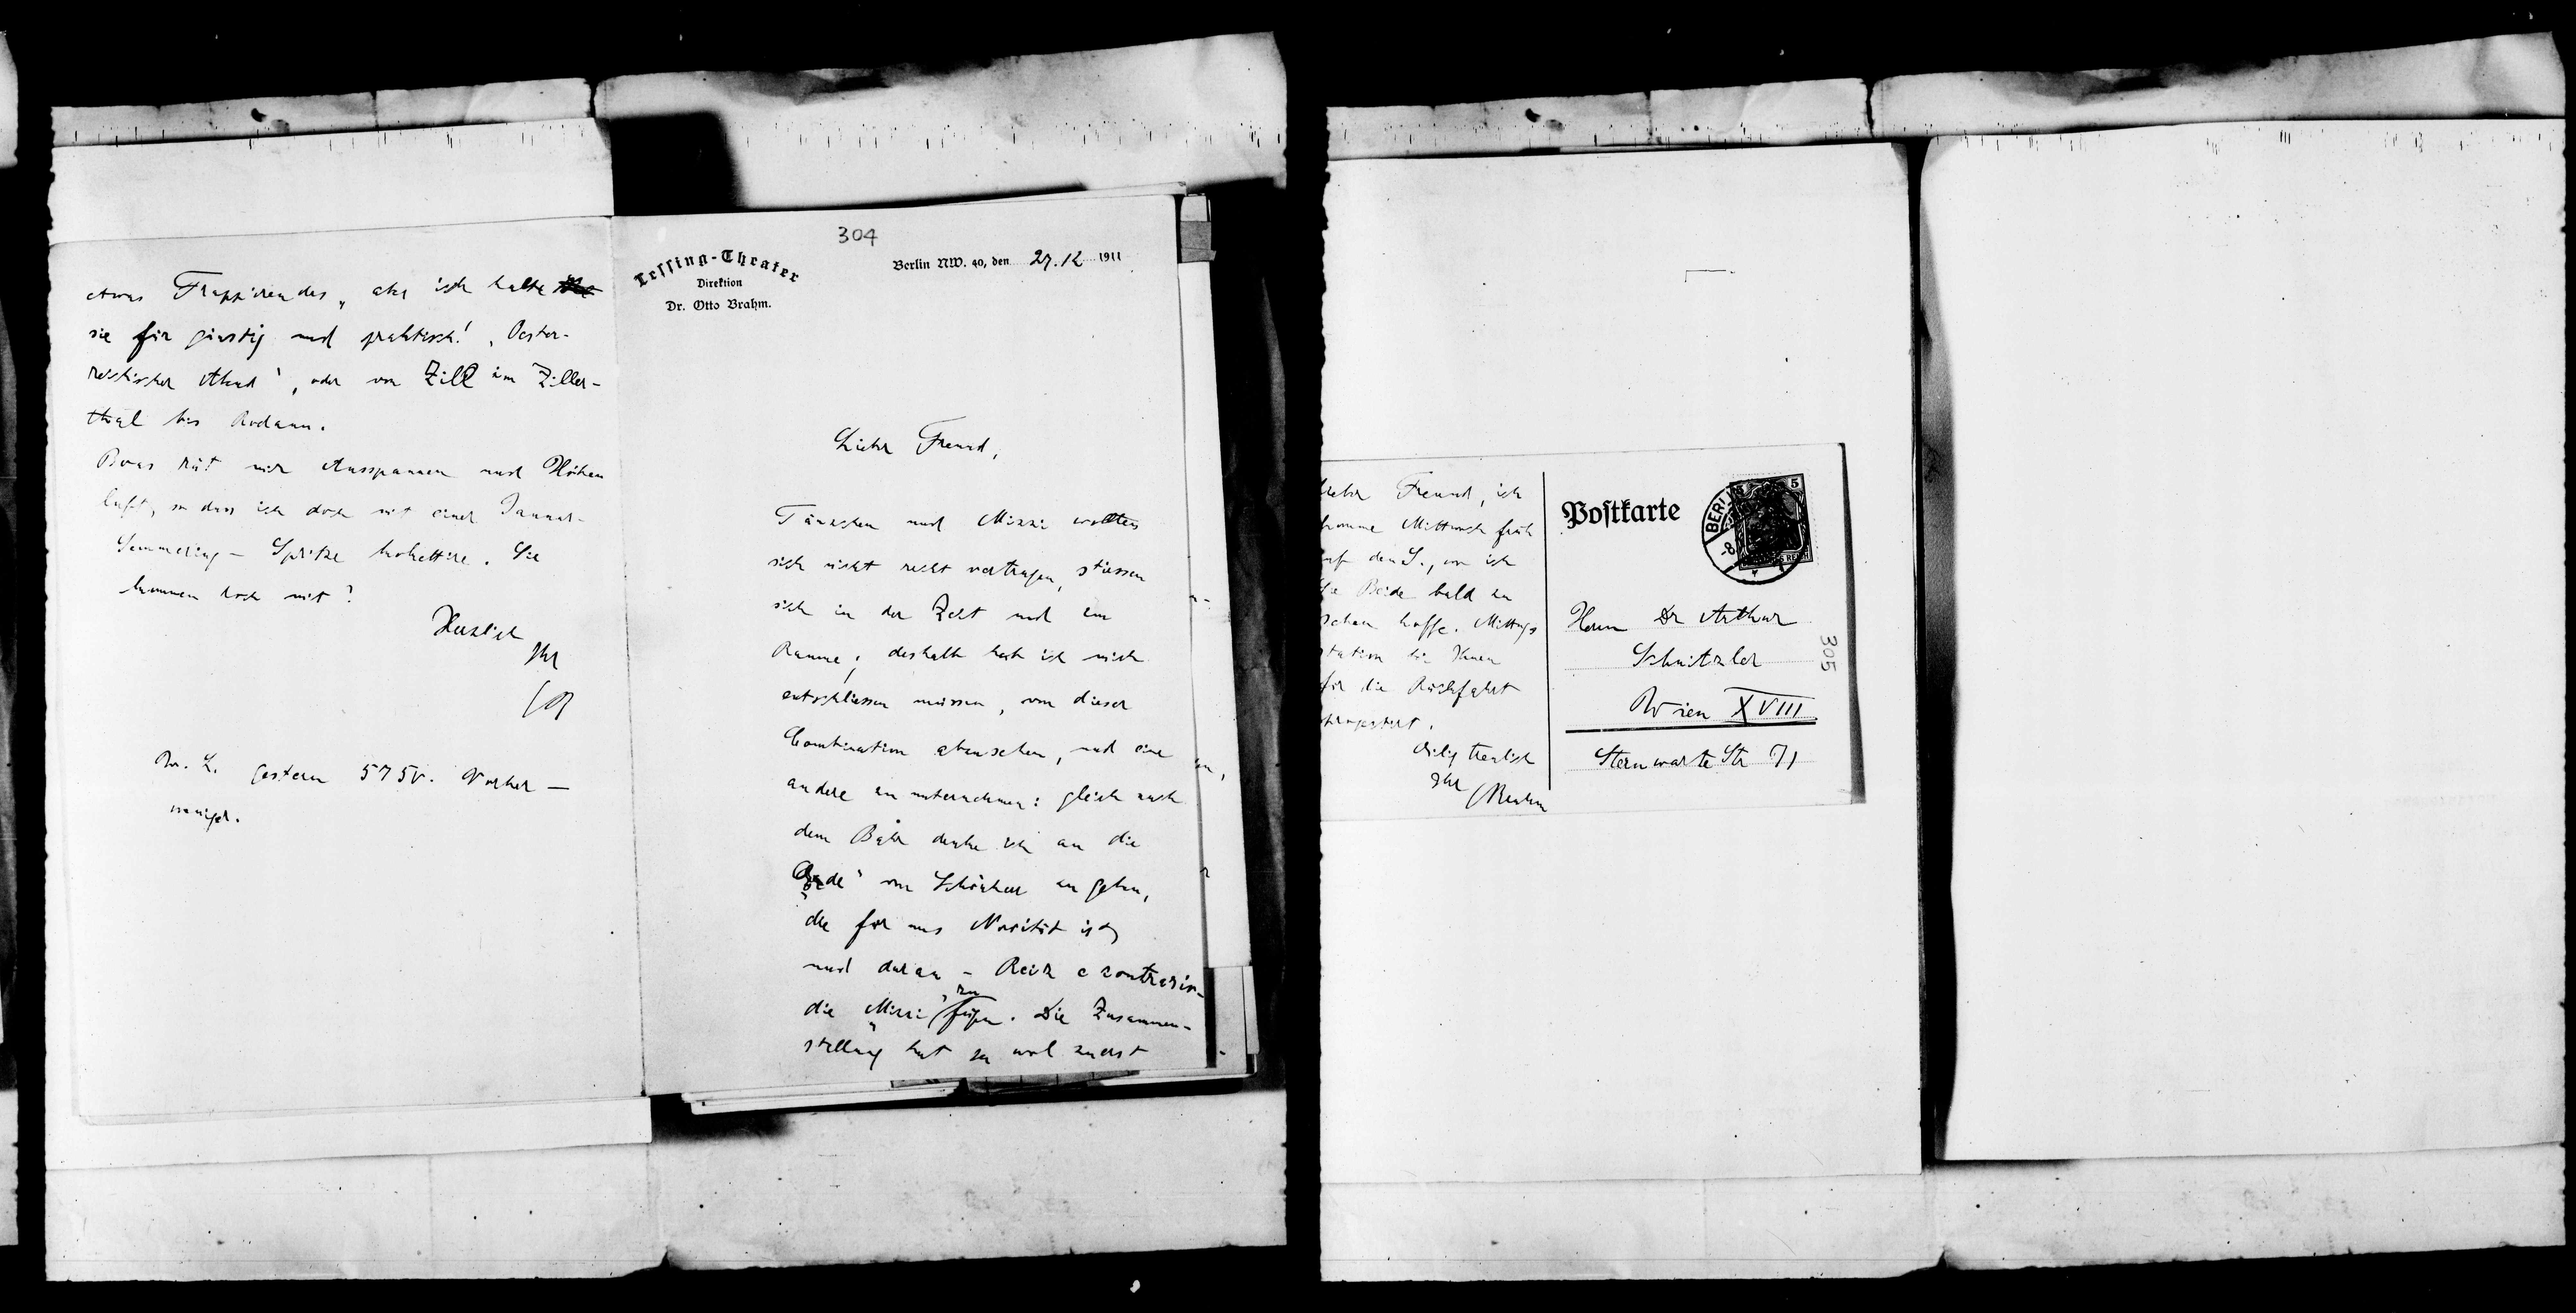 304
Lessing-Theater
Direktion
Dr. Otto Brahm.
Berlin NW. 40, den 27.12 1911
Lieber Freund,
Tänzchen und Mizzi wollten
sich nicht recht vertragen, stiessen
sich in der Zeit und im
Raume; deshalb hab ich mich
entschliessen müssen, von dieser
Combination abzusehen, und eine
andere zu unternehmen: gleich nach
dem Bahr denke ich an die
von Schönherr zu geben,
die für uns Novität ist,
und daran – Reiz e contrario –
die „Mizzi“ zu fügen. Die Zusammen-
stellung hat ja wol zuerst
etwas Frappirendes, aber ich halte
sie für günstig und praktisch! „Oester-
reichischer Abend“, oder von Zill im Ziller-
thal bis Rodaun.
Boas rät mir Ausspannen und Höhen
luft, so dass ich doch mit einer Januar-
Semmering – Spritze kokettire. Sie
kommen doch mit?
Herzlich
Ihr
OB
W. L. gestern 575V. Vorher –
weniger.
Lieber Freund, ich
komme Mittwoch früh
auf den S., wo ich
Sie Beide bald zu
sehen hoffe. Mittags
station bin Ihnen
für die Rückfahrt
Eilig treulich
Ihr Brahm
Postkarte
BERLIN
5
Herrn Dr Arthur
Schnitzler
Wien XVIII
Sternwarte Str 71
305